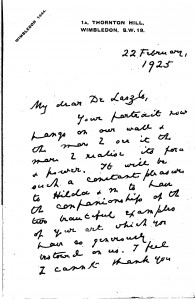 WIMBLEDON 1444.
1A. THORNTON HILL.
WIMBLEDON. S.W.19.
22 February,
1925
My dear De Laszlo,
Your portrait now
hangs on our wall &
the more I see it the
more I realise its force
& power. It will be
such a constant pleasure
to Hilda & me to have
the companionship of the
two beautiful examples
of your art which you
have so generously
bestowed on us. I feel
I cannot thank you